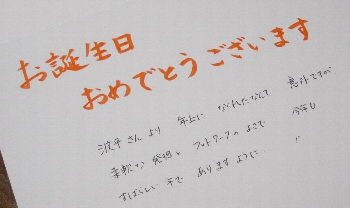 お誕生日
おめでとうございます
波平さんより 年上に なられたなんて 意外ですが
柔軟な発想と フットワークのよさで 今年も
すばらしい年で ありますように